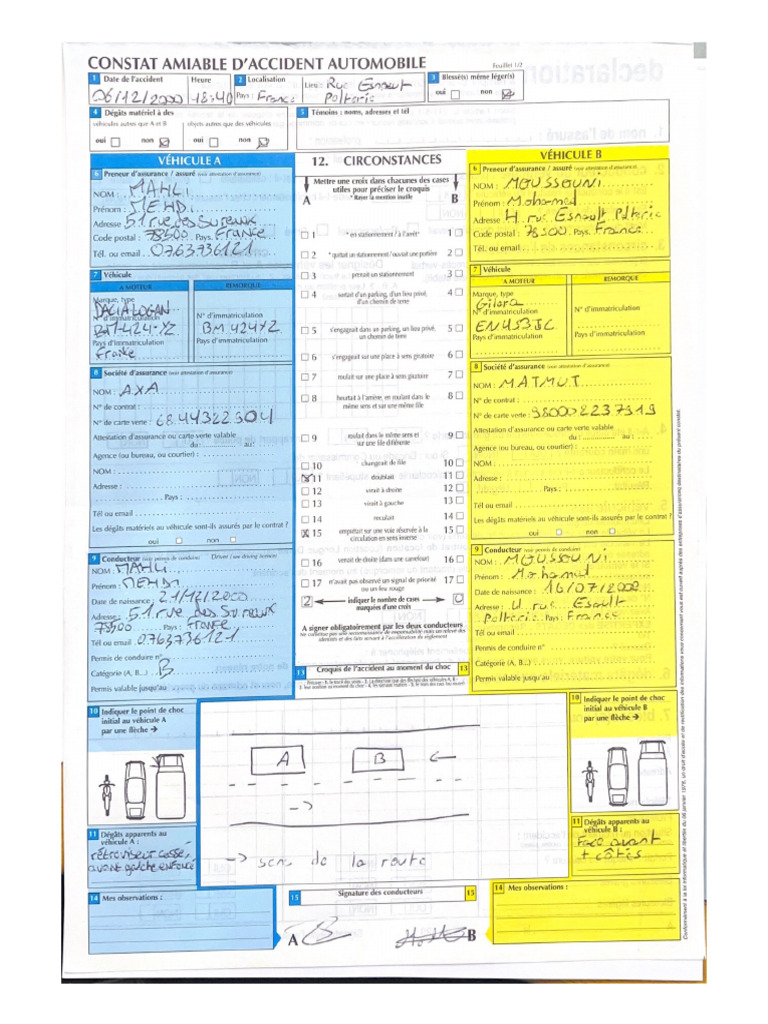 CONSTAT AMIABLE D'ACCIDENT AUTOMOBILE
Feuillet 1/2
1 Date de l'accident Heure
06/12/2000 18:40
2 Localisation
Pays : France
Lieu : Rue Esnault
Pelterie
3 Blessé(s) même léger(s)
oui non
4 Dégâts matériel à des
véhicules autres que A et B objets autres que des véhicules
oui non oui non
5 Témoins : noms, adresses et tél
VÉHICULE A
6 Preneur d'assurance / assuré (voir attestation d'assurance)
NOM : MAHLI
Prénom : MEHDI
Adresse 51 rue des Sureaux
Code postal : 78500 Pays : France
Tél. ou email : 0763736121
7 Véhicule
A MOTEUR REMORQUE
Marque, type
DACIA LOGAN
N° d'immatriculation N° d'immatriculation
BM-424-YZ BM 424YZ
Pays d'immatriculation Pays d'immatriculation
France
8 Société d'assurance (voir attestation d'assurance)
NOM : AXA
N° de contrat :
N° de carte verte : 6844322304
Attestation d'assurance ou carte verte valable
du : au :
Agence (ou bureau, ou courtier) :
NOM :
Adresse :
Pays :
Tél ou email
Les dégâts matériels au véhicule sont-ils assurés par le contrat ?
oui non
9 Conducteur (voir permis de conduire) Driver / are driving licence)
NOM : MAHLI
Prénom : MEHDI
Date de naissance : 21/12/2000
Adresse : 51 rue des Sureaux
78500 Pays : France
Tél ou email : 0763736121
Permis de conduire n°
Catégorie (A, B...) B
Permis valable jusqu'au
10 Indiquer le point de choc
initial au véhicule A
par une flèche →
11 Dégâts apparents au
véhicule A :
rétroviseur cassé,
avant gauche enfoncé
14 Mes observations :
12. CIRCONSTANCES
Mettre une croix dans chacunes des cases
utiles pour préciser le croquis
A B
* Rayer la mention inutile
1 * en stationnement / à l'arrêt* 1
2 * quittait un stationnement / ouvrait une portière 2
3 prenait un stationnement 3
4 sortait d'un parking, d'un lieu privé, 4
d'un chemin de terre
5 s'engageait dans un parking, un lieu privé, 5
un chemin de terre
6 s'engageait sur une place à sens giratoire 6
7 roulait sur une place à sens giratoire 7
8 heurtait à l'arrière, en roulant dans le 8
même sens et sur une même file
9 roulait dans le même sens et 9
sur une file différente
10 changeait de file 10
11 doublait 11
12 virait à droite 12
13 virait à gauche 13
14 reculait 14
15 empiétait sur une voie réservée à la 15
circulation en sens inverse
16 venait de droite (dans une carrefour) 16
17 n'avait pas observé un signal de priorité 17
ou un feu rouge
2 ← indiquer le nombre de cases → 0
marquées d'une croix
A signer obligatoirement par les deux conducteurs
Ne constitue pas une reconnaissance de responsabilité mais un relevé des
identités et des faits servant à l'accélération du règlement
13 Croquis de l'accident au moment du choc 13
A B ←
→
→ sens de la route
15 Signature des conducteurs 15
A B
VÉHICULE B
6 Preneur d'assurance / assuré (voir attestation d'assurance)
NOM : MOUSSOUNI
Prénom : Mohamed
Adresse
Code postal : 78500 Pays. France
Tél. ou email :
7 Véhicule
A MOTEUR REMORQUE
Marque, type
N° d'immatriculation N° d'immatriculation
EN453JC
Pays d'immatriculation Pays d'immatriculation
8 Société d'assurance (voir attestation d'assurance)
NOM : MATMUT
N° de contrat :
N° de carte verte : 980002237919
Attestation d'assurance ou carte verte valable
du : au :
Agence (ou bureau, ou courtier) :
NOM :
Adresse :
Pays :
Tél ou email
Les dégâts matériels au véhicule sont-ils assurés par le contrat ?
oui non
9 Conducteur (voir permis de conduire)
NOM : MOUSSOUNI
Prénom : Mohamed
Date de naissance : 16/07/2002
Adresse : rue Esault
Pelterie Pays : France
Tél ou email :
Permis de conduire n°
Catégorie (A, B...)
Permis valable jusqu'au
10 Indiquer le point de choc
initial au véhicule B
par une flèche →
11 Dégâts apparents au
véhicule B :
Face avant
+ côtés
14 Mes observations :